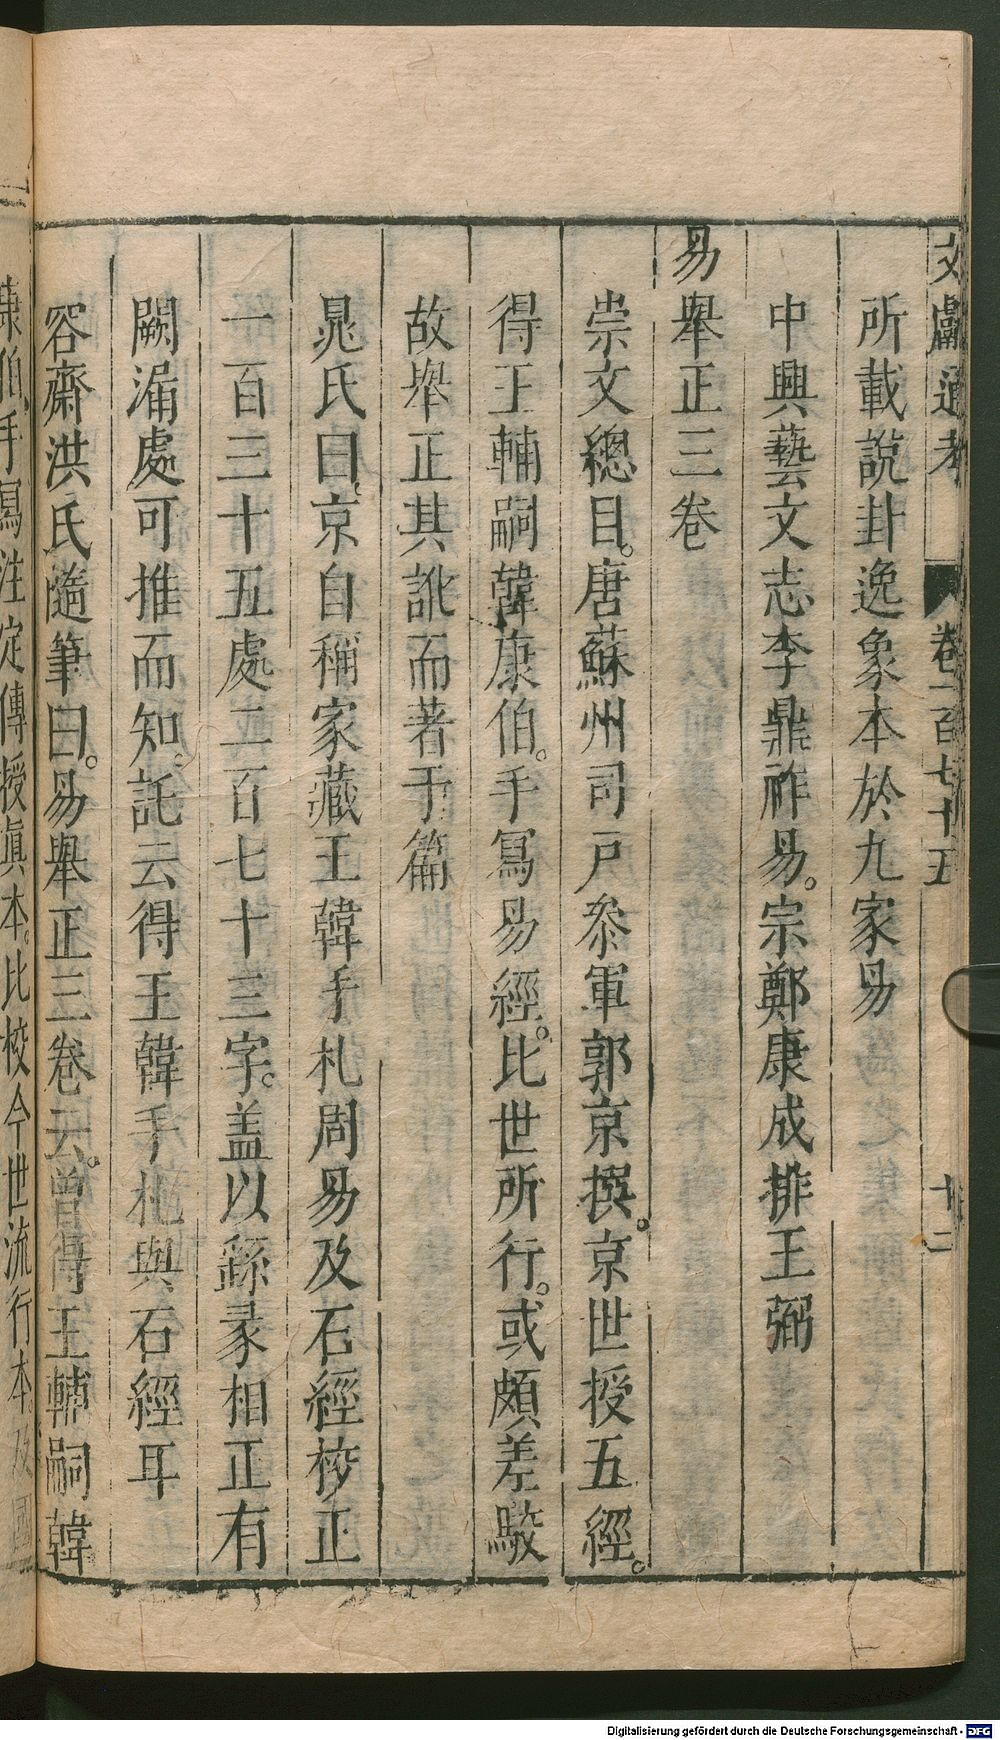 文獻通考 卷一百七十五 十二
所載說卦逸象本於九家易
中興藝文志李鼎祚易。宗鄭康成排王弼
易舉正三卷
崇文總目。唐蘇州司戸叅軍郭京撰。京世授五經。
得王輔嗣韓康伯。手冩易經。比世所行。或頗差駮
故舉正其訛而著于篇
晁氏曰。京自稱家藏王韓手札周易及石經校正
一百三十五處二百七十三字。盖以繇彖相正有
闕漏處可推而知。託云得王韓手札與石經耳
容齋洪氏隨筆曰。易舉正三卷云。曾得王輔嗣韓
康伯。手冩注定傳授眞本。比校今世流行本。及國
Digitalisierung gefördert durch die Deutsche Forschungsgemeinschaft - DFG